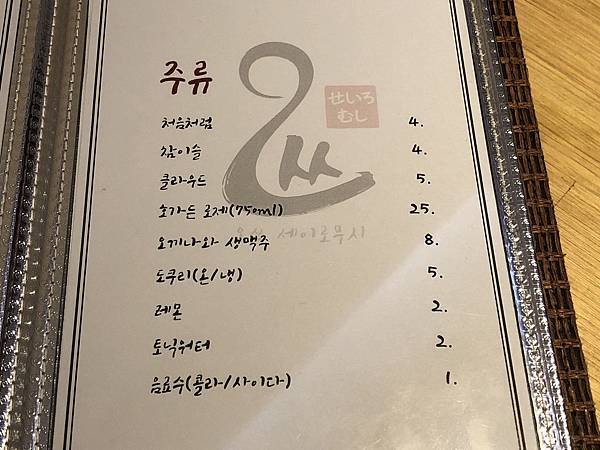 주류
せいろ
むし
처음처럼 4.
참이슬 4.
클라우드 5.
호가든 로제(750ml) 25.
세이로무시
오키나와 생맥주 8.
도쿠리(온/냉) 5.
레몬 2.
토닉워터 2.
음료수(콜라/사이다) 1.